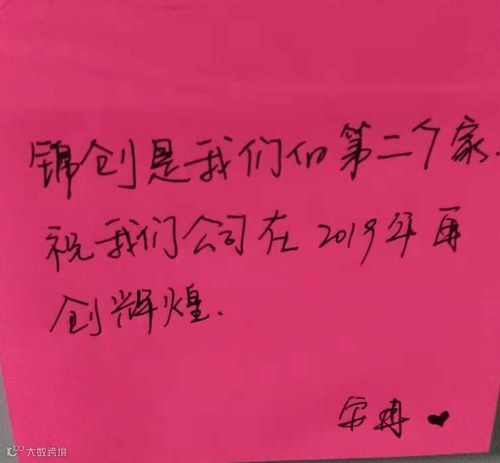 锦创是我们的第二个家.
祝我们公司在2019年再
创辉煌.
宋冉 ♥
大数跨境